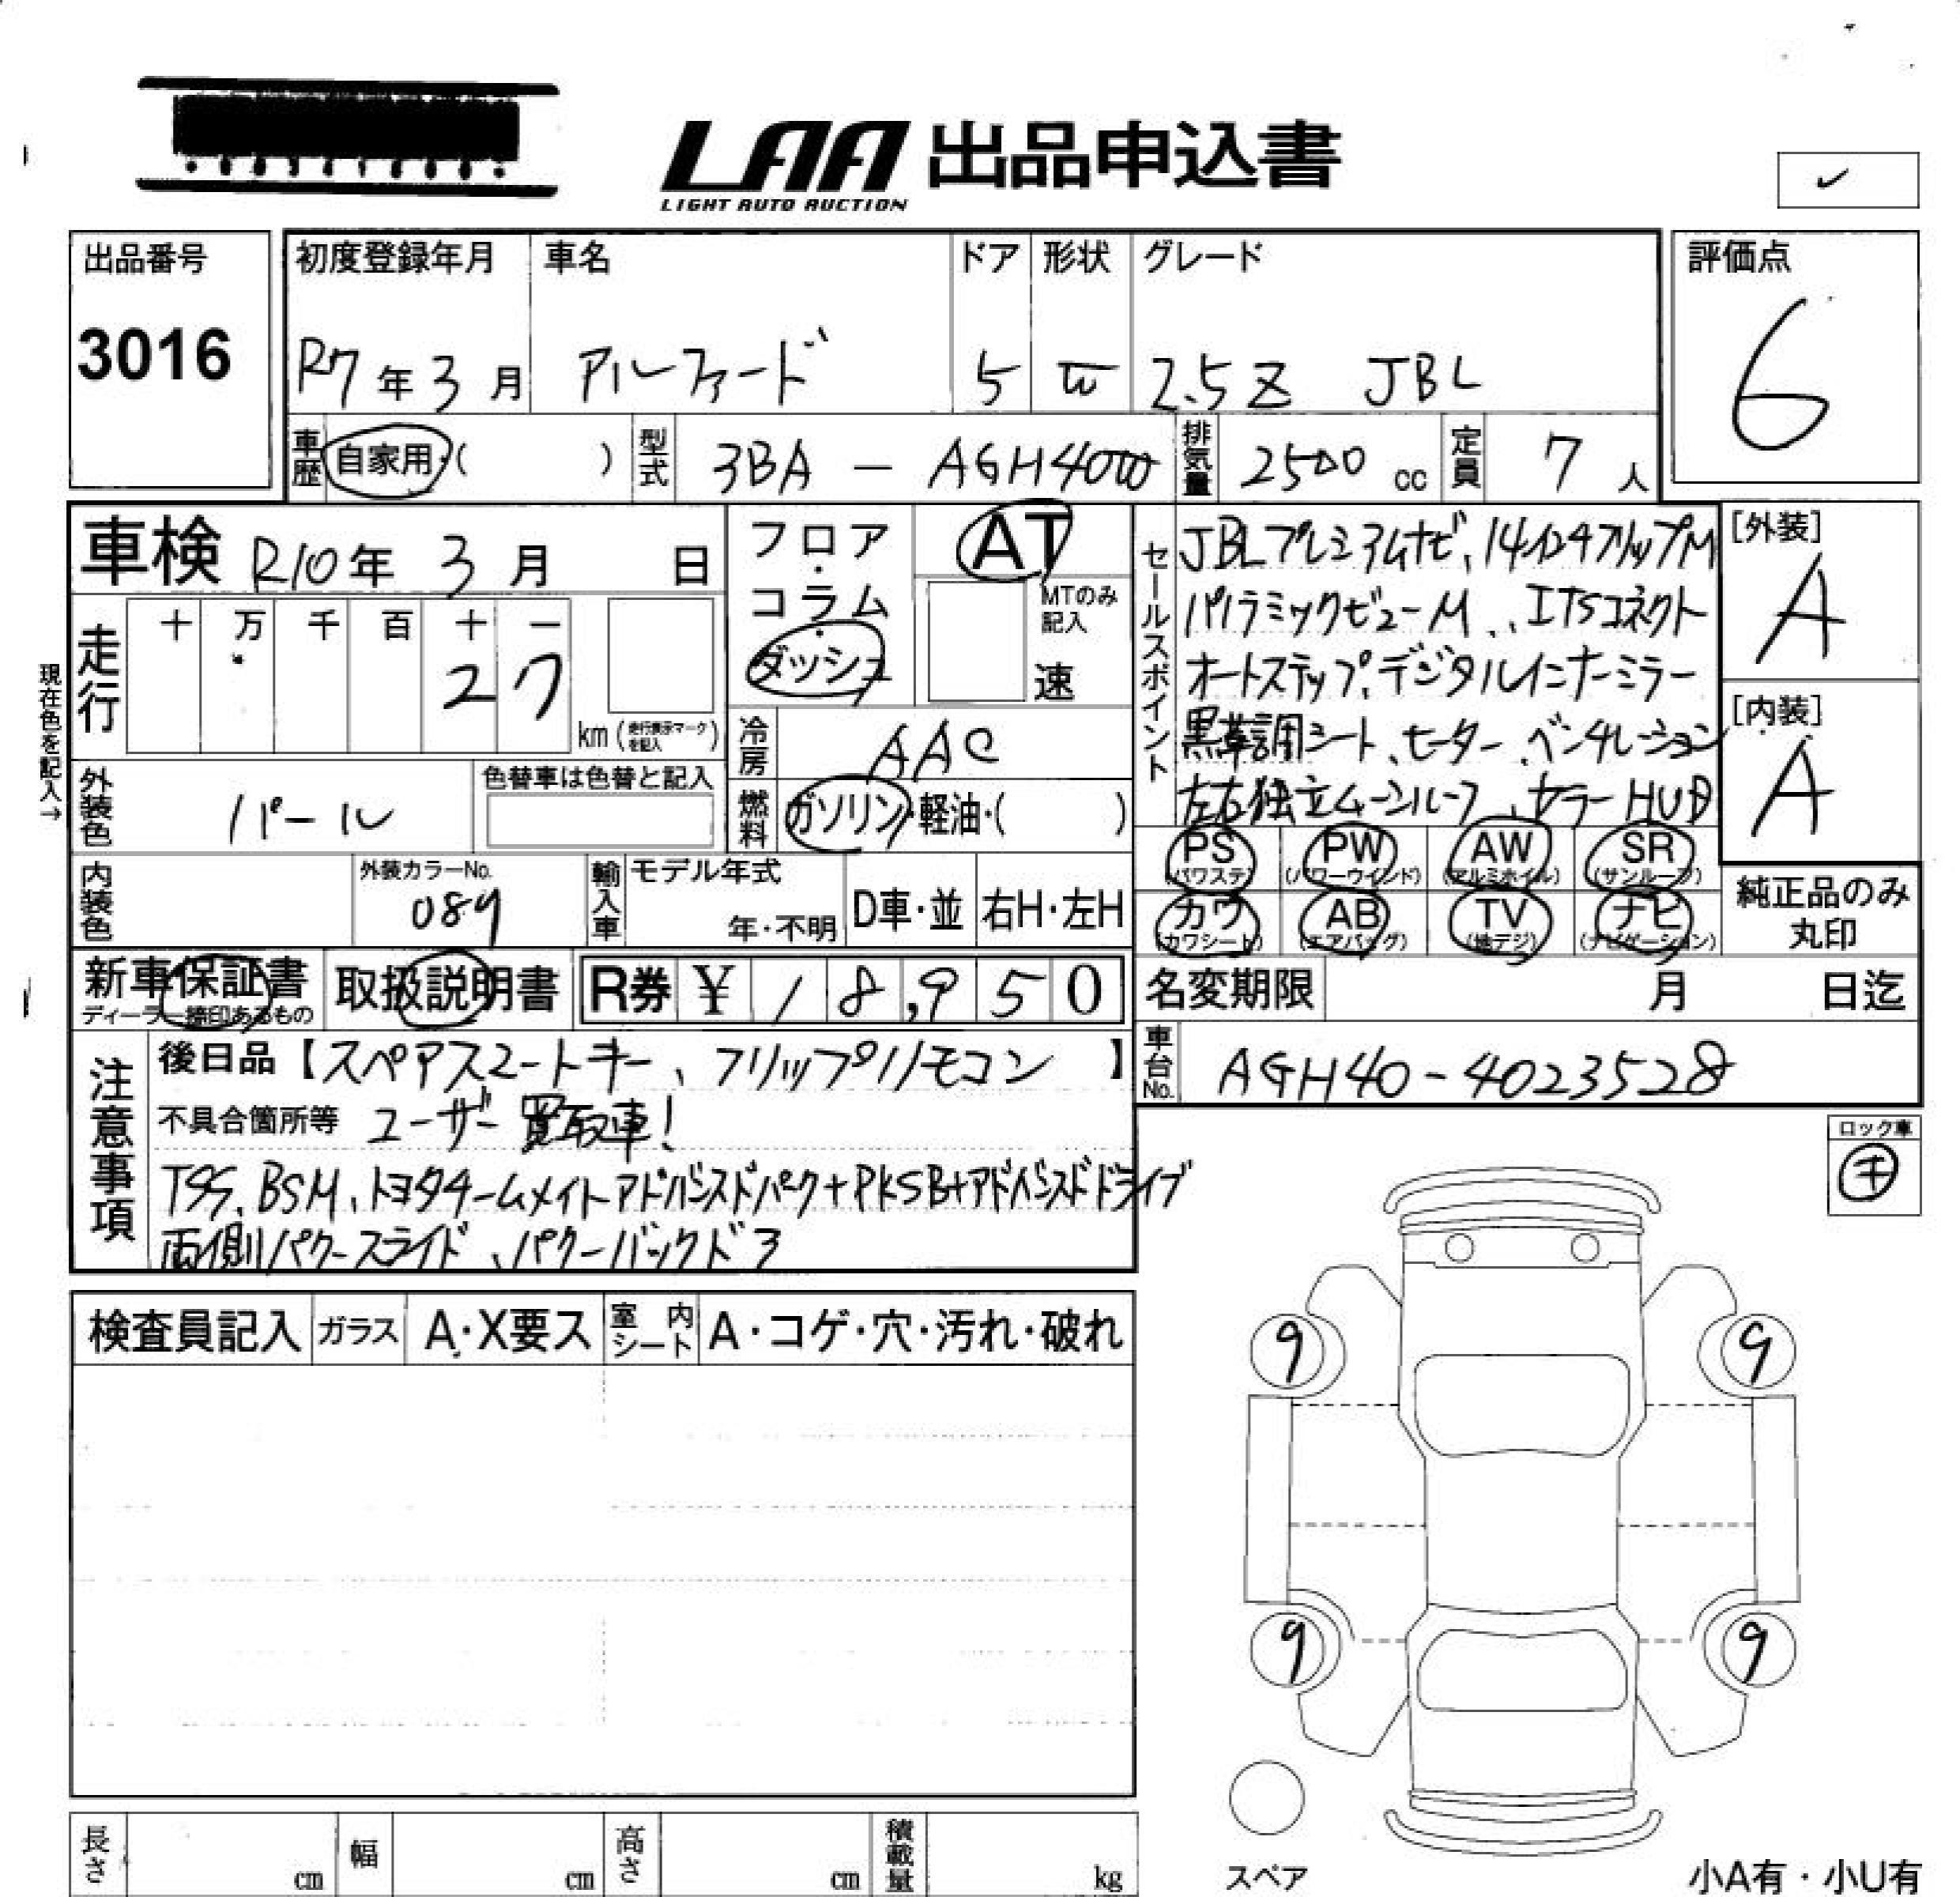 LAA 出品申込書
LIGHT AUTO AUCTION
✓
出品番号
3016
初度登録年月 車名 ドア 形状 グレード
R7年3月 アルファード 5 W 2.5Z JBL
評価点
6
車歴 自家用・( ) 型式 3BA - AGH40W 排気量 2500 cc 定員 7 人
車検 R10年 3月 日
フロア・コラム・ダッシュ
AT
MTのみ記入
速
走行 十 万 千 百 十 一
27
km (走行表示マークを記入)
現在色を記入→
冷房 AAC
燃料 ガソリン・軽油・( )
外装色 パール
色替車は色替と記入
内装色
外装カラーNo.
089
輸入車 モデル年式
年・不明
D車・並 右H・左H
セールスポイント
JBLプレミアムナビ、14インチフリップM
パノラミックビューM、ITSコネクト
オートステップ、デジタルインナーミラー
黒革調シート、ヒーター、ベンチレーション
左右独立ムーンルーフ、カラーHUD
[外装]
A
[内装]
A
PS PW AW SR
(パワステ) (パワーウインド) (アルミホイル) (サンルーフ)
カワ AB TV ナビ
(カワシート) (エアバッグ) (地デジ) (ナビゲーション)
純正品のみ
丸印
新車保証書
ディーラー捺印あるもの
取扱説明書
R券 ¥ 18,950
名変期限 月 日迄
車台No. AGH40-4023528
注意事項
後日品【スペアスマートキー、フリップリモコン】
不具合箇所等 ユーザー買取車!
TSS、BSM、トヨタチームメイトアドバンスドパーク+PKSB+アドバンスドドライブ
両側パワースライド、パワーバックドア
ロック車
キ
検査員記入 ガラス A・X要ス 室内シート A・コゲ・穴・汚れ・破れ
9 9
9 9
スペア
小A有・小U有
長さ cm 幅 cm 高さ cm 積載量 kg